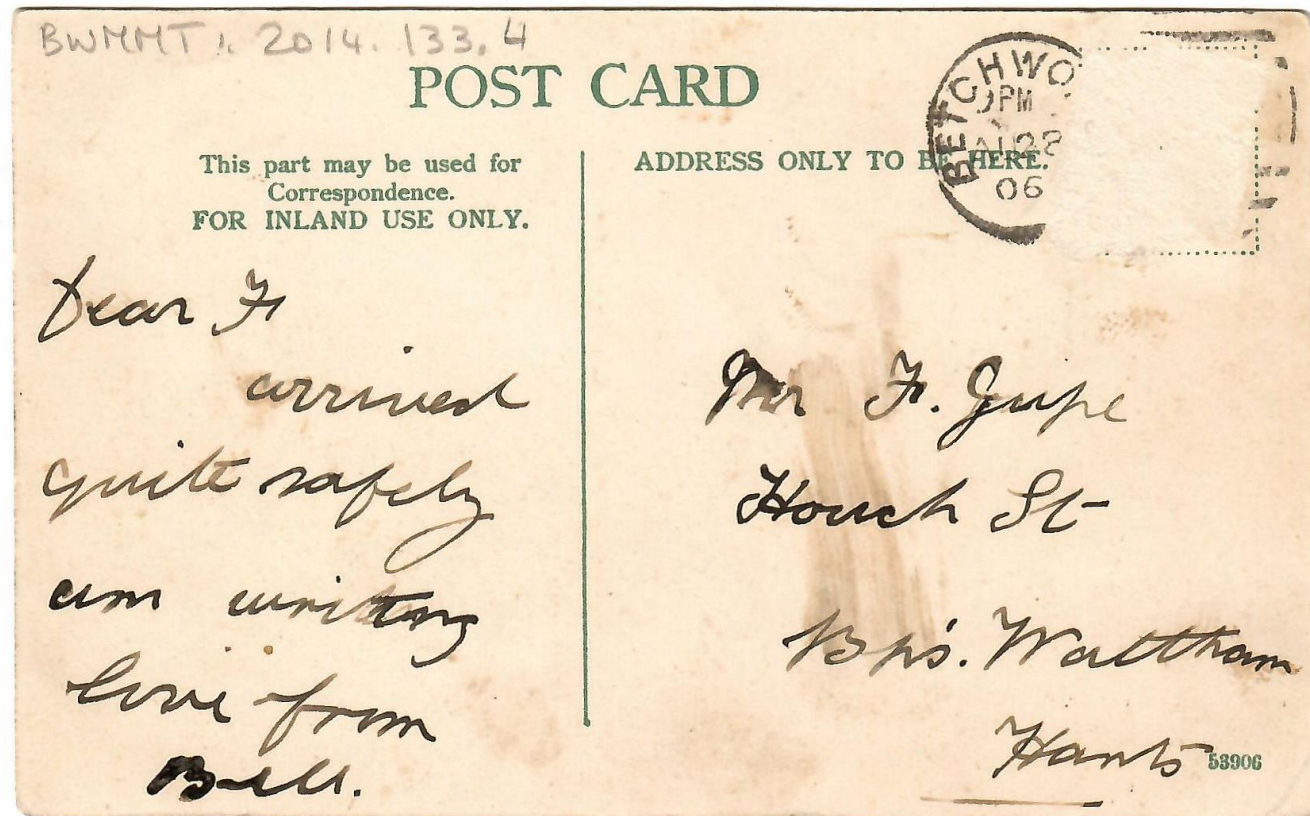 BWMMT: 2014.133.4
POST CARD
This part may be used for
Correspondence.
FOR INLAND USE ONLY.
ADDRESS ONLY TO BE HERE.
BETCHWO
PM
AU 28
06
Dear F
arrived
quite safely
am writing
love from
Bill.
Mr F. Gupe
Houch St
Bps. Waltham
Hants
53906